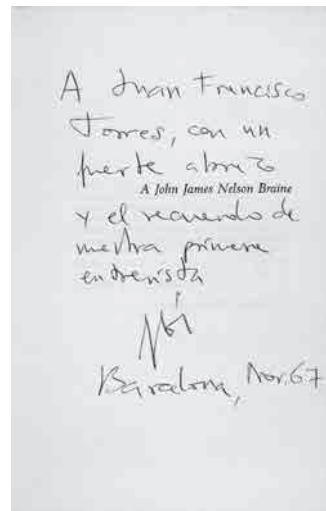 A Juan Francisco
Torres, con un
fuerte abrazo
A John James Nelson Braine
y el recuerdo de
nuestra primera
entrevista
Barcelona, Nov. 67